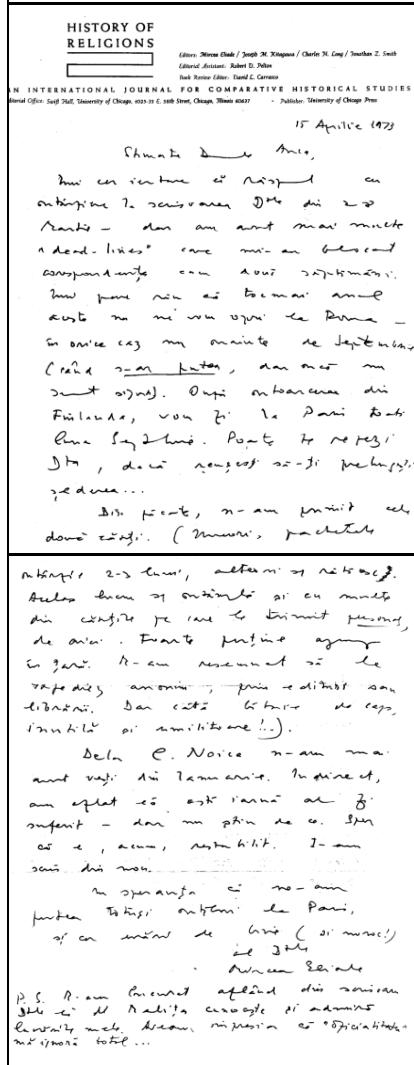 HISTORY OF
RELIGIONS
Editors: Mircea Eliade / Joseph M. Kitagawa / Charles H. Long / Jonathan Z. Smith
Editorial Assistant: Robert D. Pelton
Book Review Editor: David L. Carrasco
N INTERNATIONAL JOURNAL FOR COMPARATIVE HISTORICAL STUDIES
ditorial Office: Swift Hall, University of Chicago, 1025-35 E. 58th Street, Chicago, Illinois 60637 · Publisher: University of Chicago Press
15 Aprilie 1973
Stimate Anca,
cer iertare că răspund cu
întârziere la scrisoarea Dtale din
Martie – dar am avut mai multe
"dead-lines" care mi-au blocat
corespondența cam două săptămâni.
Îmi pare rău că tocmai anul
acesta nu ne vom opri la Roma –
în orice caz nu înainte de Septembrie
(când s-ar putea, dar încă nu
sunt sigur). După întoarcerea din
Finlanda, vom fi la Paris toată
luna Sept. Poate te repezi
Dta, dacă reușești să-ți prelungești
șederea...
Din păcate, n-am primit cele
două cărți. (Uneori, pachetele
întârzie 2-3 luni, alteori se rătăcesc).
Același lucru se întâmplă și cu multe
din cărțile pe care le trimit personal,
de aici. Foarte puține ajung
în țară. M-am resemnat să le
expediez anonim, prin edituri sau
librării. Dar câtă bătaie de cap,
inutilă și umilitoare!..).
Dela C. Noica n-am mai
avut vești din Ianuarie. Indirect,
am aflat că astă iarnă ar fi
suferit – dar nu știu de ce. Sper
că e, acum, restabilit. I-am
scris din nou.
În speranța că ne-am
putea totuși întâlni la Paris,
și cu urări de (și noroc!)
al Dtale
Mircea Eliade
P.S. M-am bucurat aflând din scrisoarea
Dtale că Dl Malița cunoaște și admiră
lucrările mele. Aveam impresia că "oficialitatea"
mă ignoră total...